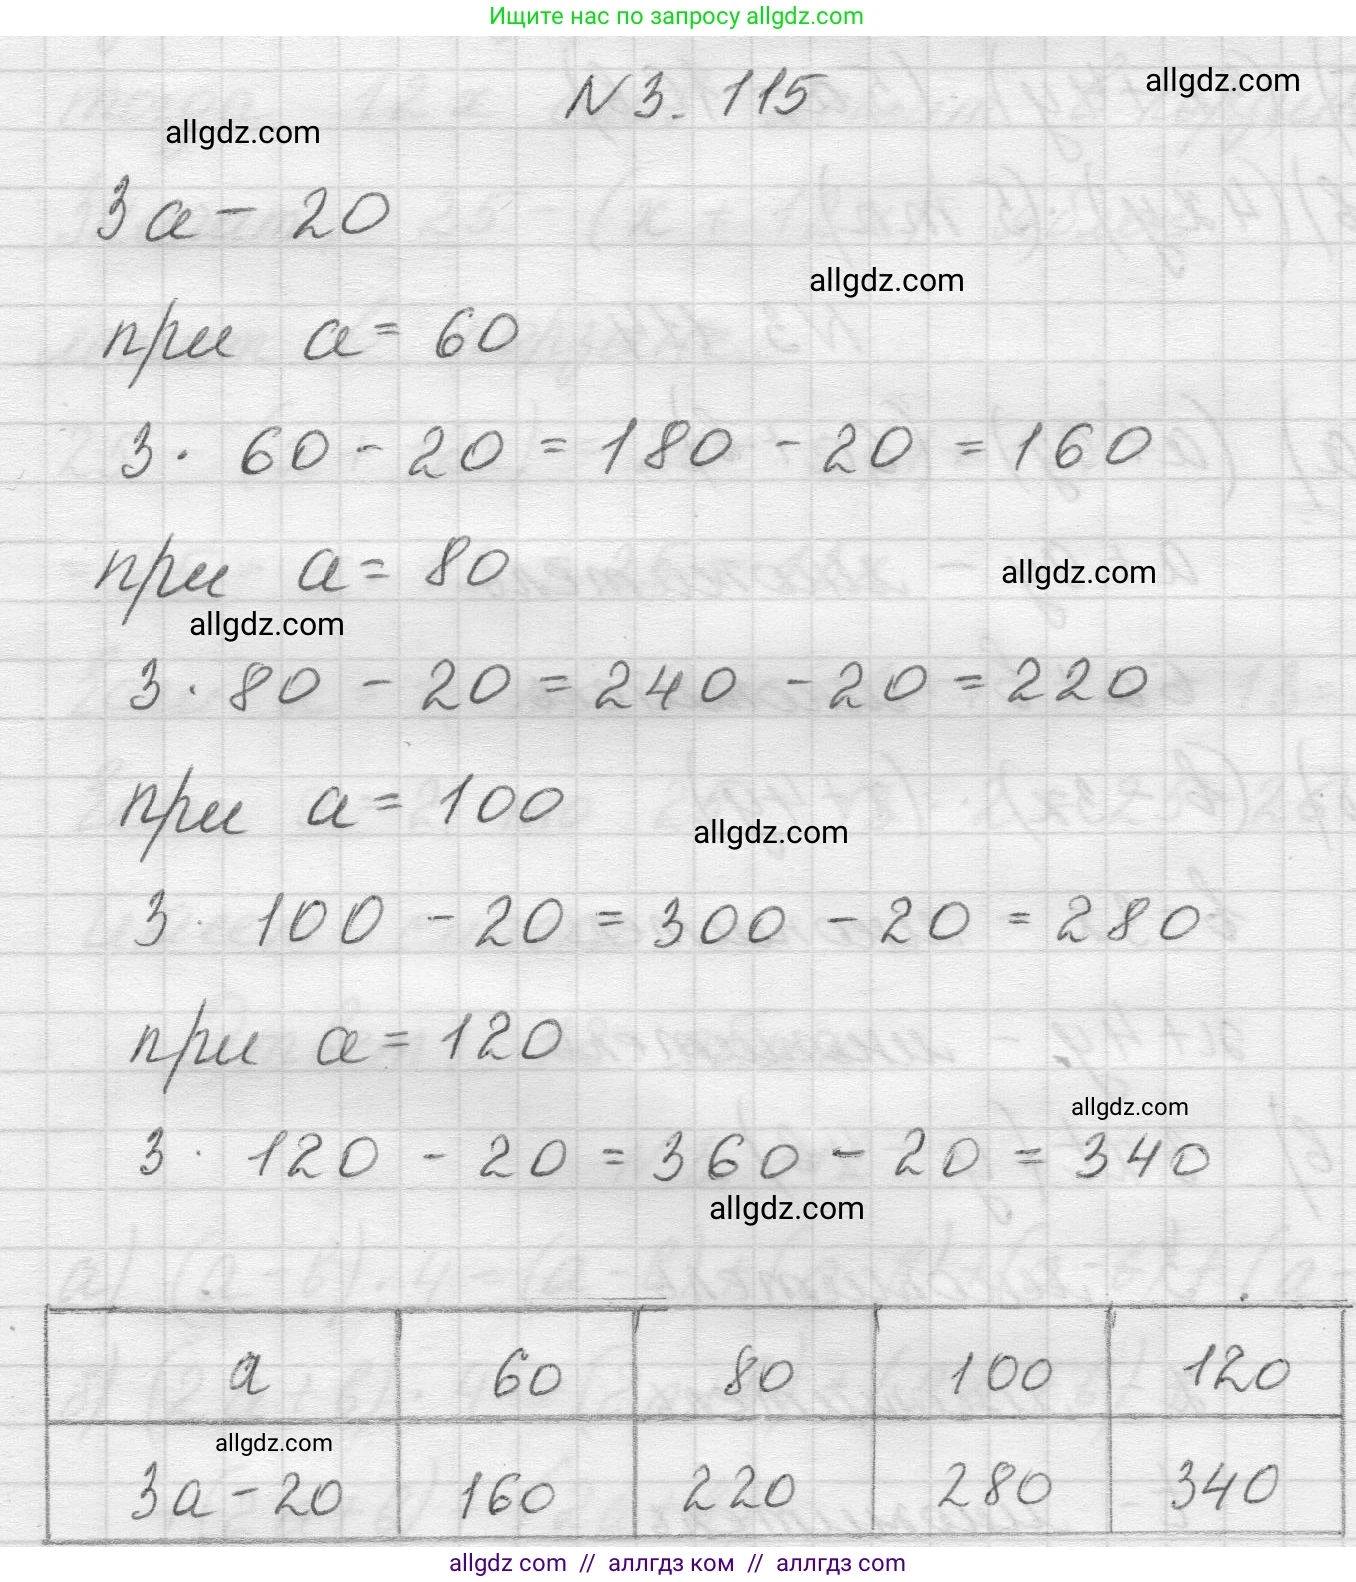 Ищите нас по запросу allgdz.com
N 3. 115
allgdz.com
allgdz.com
3a - 20
allgdz.com
при a = 60
3 · 60 - 20 = 180 - 20 = 160
при a = 80
allgdz.com
allgdz.com
3 · 80 - 20 = 240 - 20 = 220
при a = 100
allgdz.com
3 · 100 - 20 = 300 - 20 = 280
при a = 120
allgdz.com
3 · 120 - 20 = 360 - 20 = 340
allgdz.com
a 60 80 100 120
allgdz.com
3a - 20 160 220 280 340
allgdz com // аллгдз ком // allgdz com